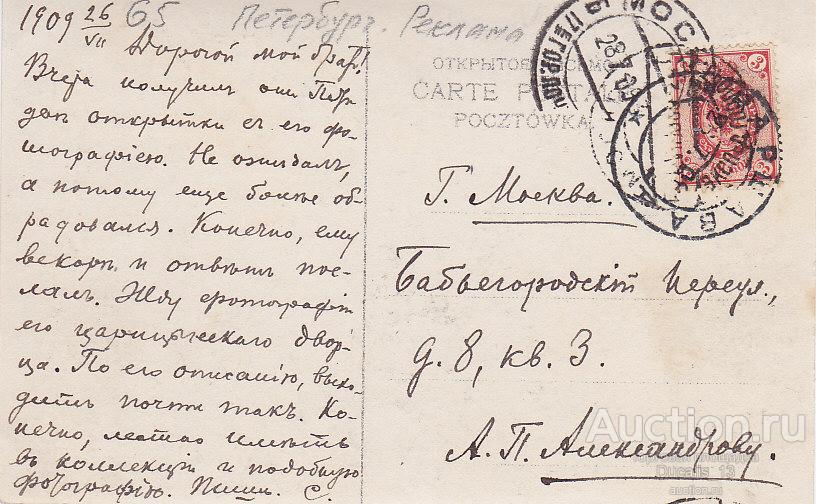 1909 26/VII
65
Петербург. Реклама
Дорогой мой братъ!
Вчера получилъ от
ден открытки съ его фо-
тографіею. Не ожидалъ,
а потому еще болѣе об-
радовался. Конечно, ему
вскорѣ и отвѣтъ пос-
лалъ. Жду фотографіи
его царицынскаго двор-
ца. По его описанію, выхо-
дитъ почти такъ. Ко-
нечно, лестно имѣть
въ коллекціи и подобную
фотографію. Пиши. С.
ОТКРЫТОЕ ПИСЬМО
CARTE POSTALE
POCZTÓWKA
МОСК
ВАРШАВА
28.7.09
Г. Москва.
Бабьегородскій переул.,
д. 8, кв. 3.
А. П. Александрову.
Auction.ru
Ducalis 13
auction.ru